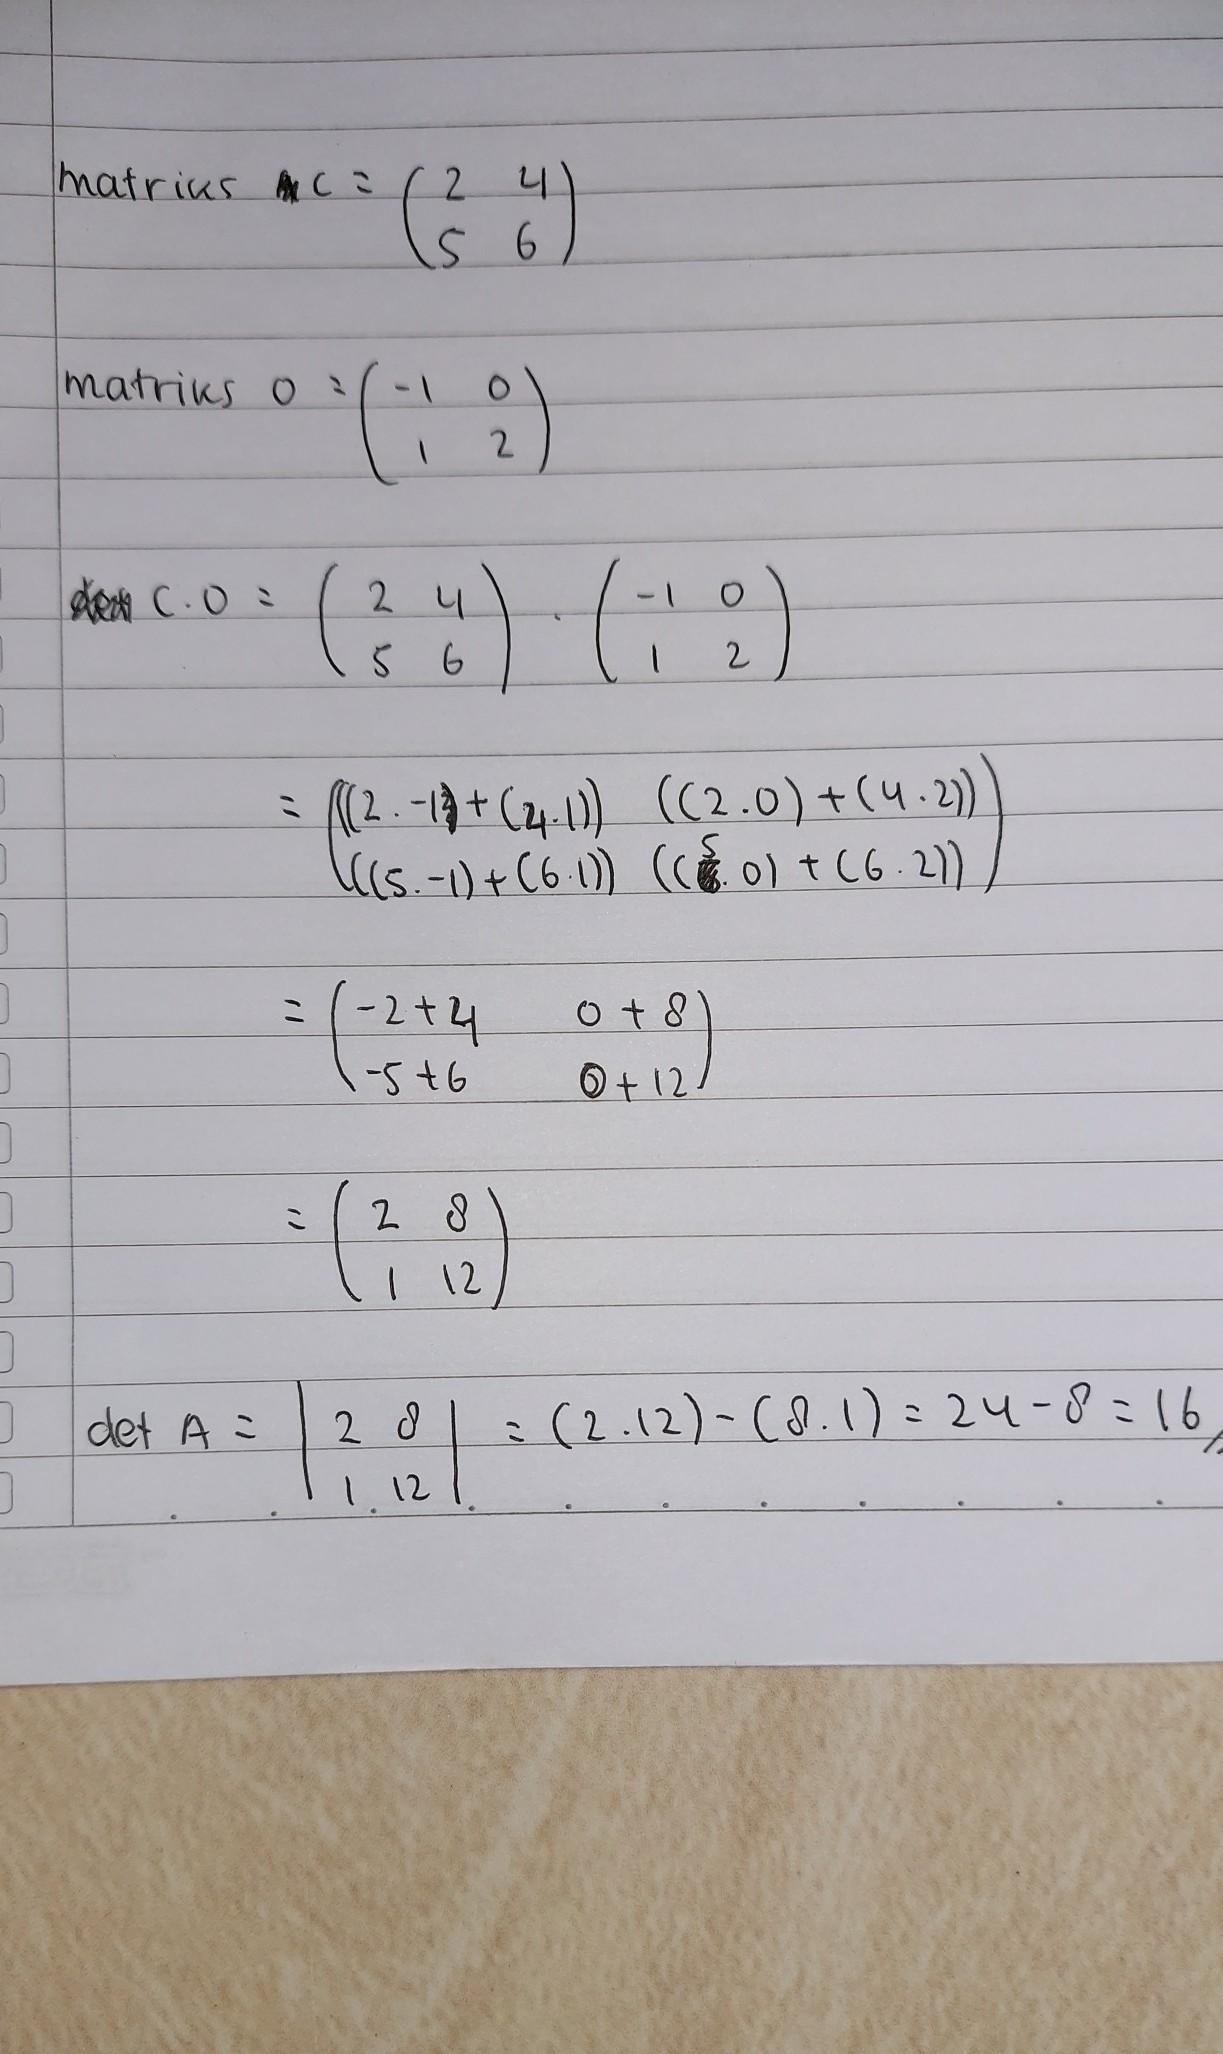 matriks C = ( 2 4
5 6 )
matriks O = ( -1 0
1 2 )
C.O = ( 2 4
5 6 ) . ( -1 0
1 2 )
= ( ((2.-1)+(4.1)) ((2.0)+(4.2))
((5.-1)+(6.1)) ((5.0)+(6.2)) )
= ( -2+4 0+8
-5+6 0+12 )
= ( 2 8
1 12 )
det A = | 2 8
1 12 | = (2.12)-(8.1) = 24-8 = 16